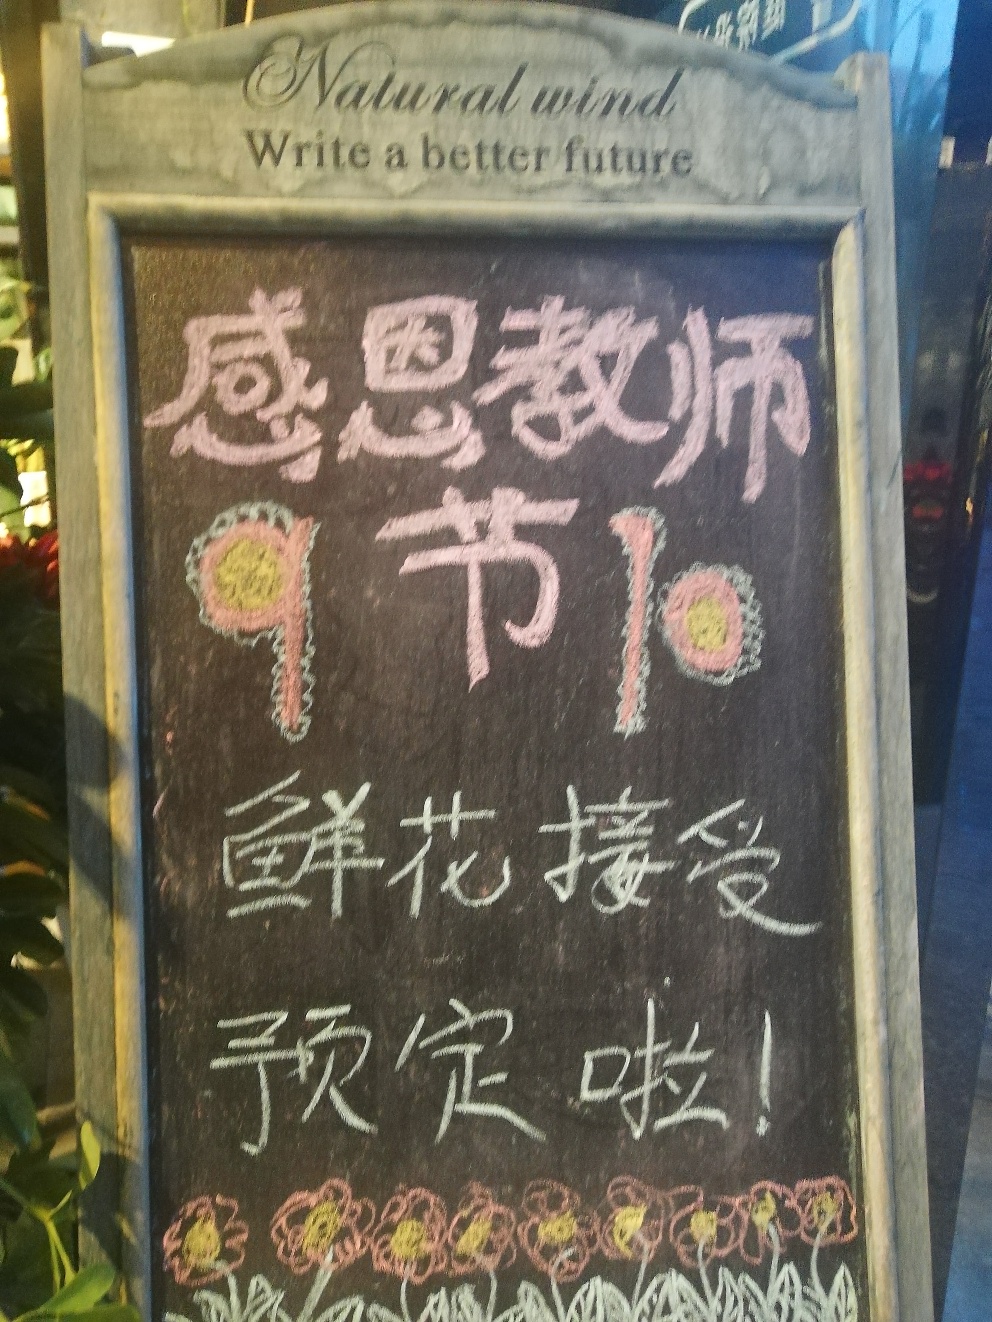 Natural wind
Write a better future
感恩教师
9 节 10
鲜花接受
预定啦!